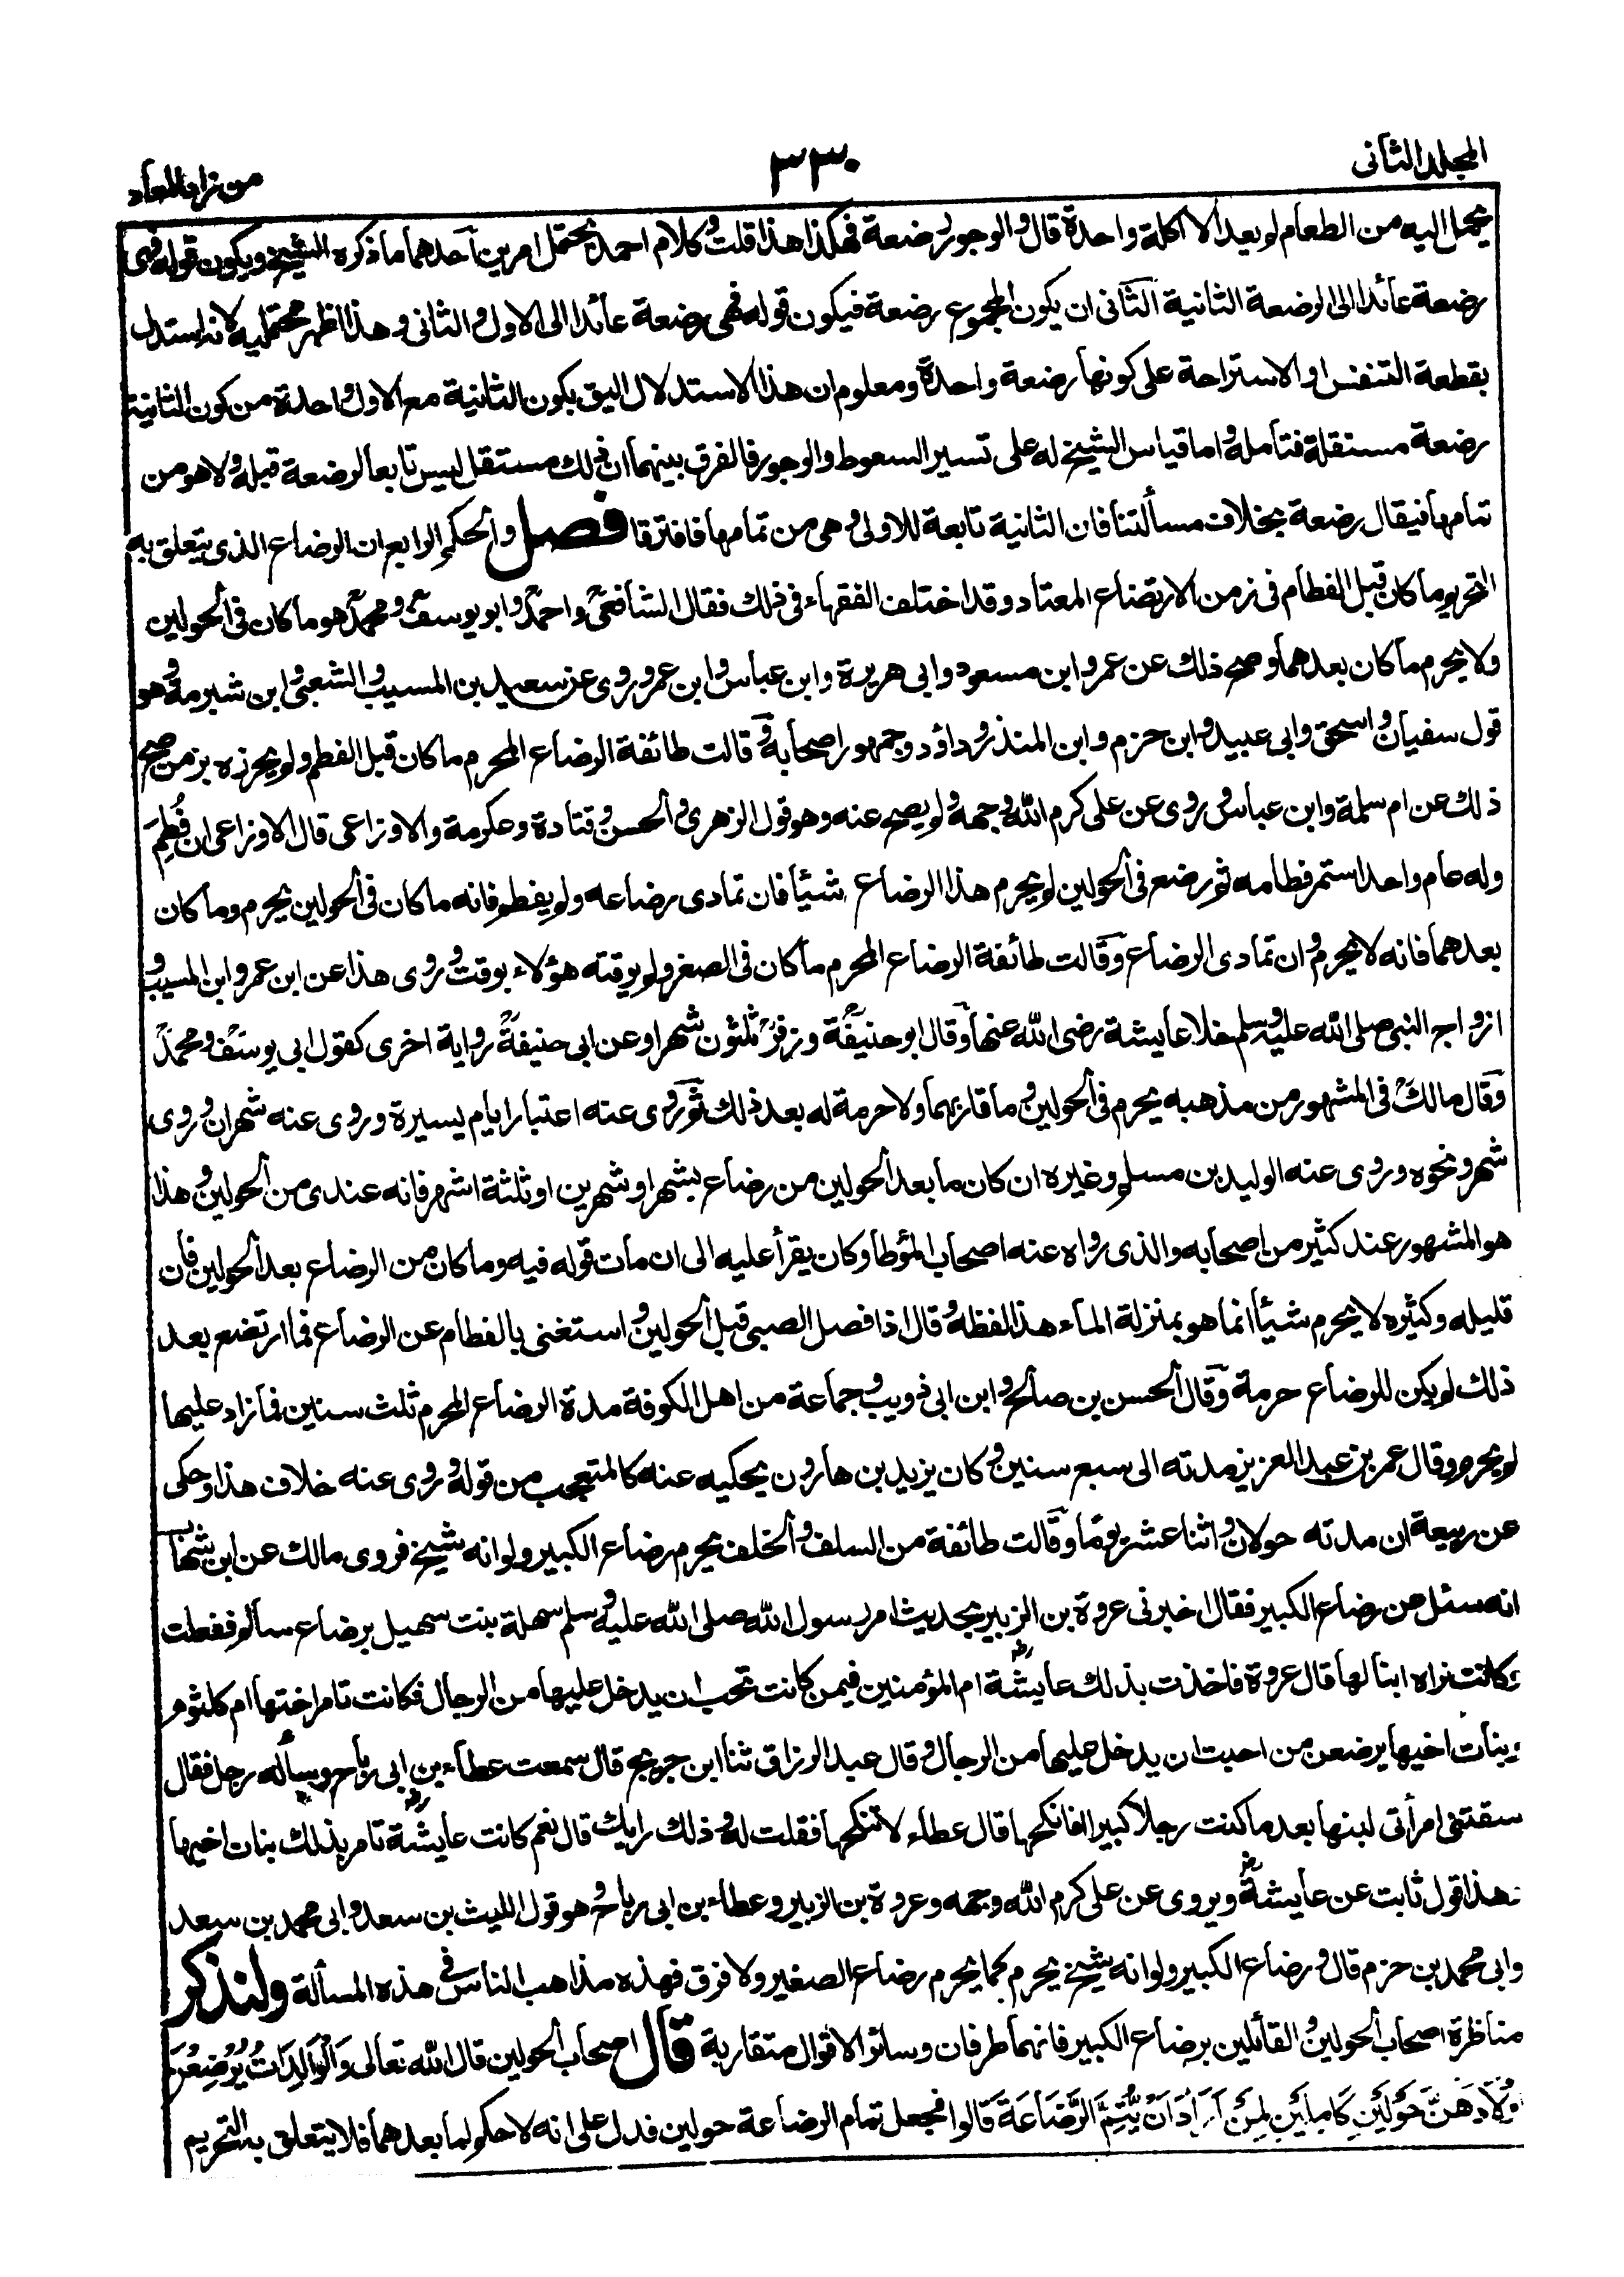 المجلد الثانى
٣٣٠
من زاد المعاد
يحمل اليه من الطعام لم يعد الا اكلة واحدة قال والوجور رضعة فهكذا هذا قلت وكلام احمد يحتمل امرين احدهما ما ذكره الشيخ ويكون قوله فهى
رضعة عائدا الى الرضعة الثانية الثانى ان يكون المجموع رضعة فيكون قوله فهى رضعة عائدا الى الاول والثانى وهذا اظهر محتمليه لانه استدل
بقطعة التنفس او الاستراحة على كونها رضعة واحدة ومعلوم ان هذا الاستدلال اليق بكون الثانية مع الاولى واحدة من كون الثانية
رضعة مستقلة فتأمله واما قياس الشيخ له على تسير السعوط والوجور فالفرق بينهما ان ذلك مستقل ليس تابعا لرضعة قبله ولا هو من
تمامها فيقال رضعة بخلاف مسألتنا فان الثانية تابعة للاولى وهى من تمامها فافترقا فصل والحكم الرابع ان الرضاع الذى يتعلق به
التحريم ما كان قبل الفطام فى زمن الارتضاع المعتاد وقد اختلف الفقهاء فى ذلك فقال الشافعى واحمد وابو يوسف ومحمد هو ما كان فى الحولين
ولا يحرم ما كان بعدهما وصح ذلك عن عمر وابن مسعود وابى هريرة وابن عباس وابن عمر وروى عن سعيد بن المسيب والشعبى وابن شبرمة وهو
قول سفيان واسحق وابى عبيد وابن حزم وابن المنذر وداؤد وجمهور اصحابه وقالت طائفة الرضاع المحرم ما كان قبل الفطم ولم يحرزه بزمن صح
ذلك عن ام سلمة وابن عباس وروى عن على كرم الله وجهه ولم يصح عنه وهو قول الزهرى والحسن وقتادة وعكرمة والاوزاعى قال الاوزاعى ان فُطِمَ
وله عام واحد استمر فطامه ثم رضع فى الحولين لم يحرم هذا الرضاع شيئا فان تمادى رضاعه ولم يفطم فانه ما كان فى الحولين يحرم وما كان
بعدهما فانه لا يحرم وان تمادى الرضاع وقالت طائفة الرضاع المحرم ما كان فى الصغر ولم يوقته هؤلاء بوقت وروى هذا عن ابن عمر وابن المسيب و
ازواج النبى صلى الله عليه وسلم خلا عايشة رضى الله عنها وقال ابو حنيفة وزفر ثلثون شهرا وعن ابى حنيفة رواية اخرى كقول ابى يوسف ومحمد
وقال مالك فى المشهور من مذهبه يحرم فى الحولين وما قاربهما ولا حرمة له بعد ذلك ثم روى عنه اعتبار ايام يسيرة وروى عنه شهران وروى
شهر ونحوه وروى عنه الوليد بن مسلم وغيره ان كان ما بعد الحولين من رضاع بشهر او شهرين او ثلثة اشهر فانه عندى من الحولين وهذا
هو المشهور عند كثير من اصحابه والذى رواه عنه اصحاب المؤطا وكان يقرأ عليه الى ان مات قوله فيه وما كان من الرضاع بعد الحولين فان
قليله وكثيره لا يحرم شيئا انما هو بمنزلة الماء هذا لفظه وقال اذا فصل الصبى قبل الحولين واستغنى بالفطام عن الرضاع فما ارتضع بعد
ذلك لم يكن للرضاع حرمة وقال الحسن بن صالح وابن ابى ذويب وجماعة من اهل الكوفة مدة الرضاع المحرم ثلث سنين فما زاد عليها
لم يحرم وقال عمر بن عبد العزيز مدته الى سبع سنين وكان يزيد بن هارون يحكيه عنه كالمتعجب من قوله وروى عنه خلاف هذا وحكى
عن ربيعة ان مدته حولان واثنا عشر يوما وقالت طائفة من السلف والخلف يحرم رضاع الكبير ولو انه شيخ فروى مالك عن ابن شهاب
انه سئل من رضاع الكبير فقال اخبرنى عروة بن الزبير بحديث امر رسول الله صلى الله عليه وسلم سهلة بنت سهيل برضاع سالم ففعلت
وكانت تراه ابنا لها قال عروة فاخذت بذلك عايشة ام المؤمنين فيمن كانت تحب ان يدخل عليها من الرجال فكانت تامر اختها ام كلثوم
وبنات اخيها يرضعن من احبت ان يدخل عليها من الرجال وقال عبد الرزاق ثنا ابن جريج قال سمعت عطاء بن ابى رباح وسأله رجل فقال
سقتنى امرأتى لبنها بعد ما كنت رجلا كبيرا افانكحها قال عطاء لا تنكحها فقلت له وذلك رايك قال نعم كانت عايشة تامر بذلك بنات اخيها
هذا قول ثابت عن عايشة ويروى عن على كرم الله وجهه وعروة بن الزبير وعطاء بن ابى رباح وهو قول الليث بن سعد وابى محمد بن سعد
وابى محمد بن حزم قال ورضاع الكبير ولو انه شيخ يحرم كما يحرم رضاع الصغير ولا فرق فهذه مذاهب الناس فى هذه المسألة ولنذكر
مناظرة اصحاب الحولين والقائلين برضاع الكبير فانهما طرفان وسائر الاقوال متقاربة قال اصحاب الحولين قال الله تعالى وَالْوَالِدَاتُ يُرْضِعْنَ
اَوْلَادَهُنَّ حَوْلَيْنِ كَامِلَيْنِ لِمَنْ اَرَادَ اَنْ يُّتِمَّ الرَّضَاعَةَ قالوا فجعل تمام الرضاعة حولين فدل على انه لا حكم لما بعدهما فلا يتعلق به التحريم